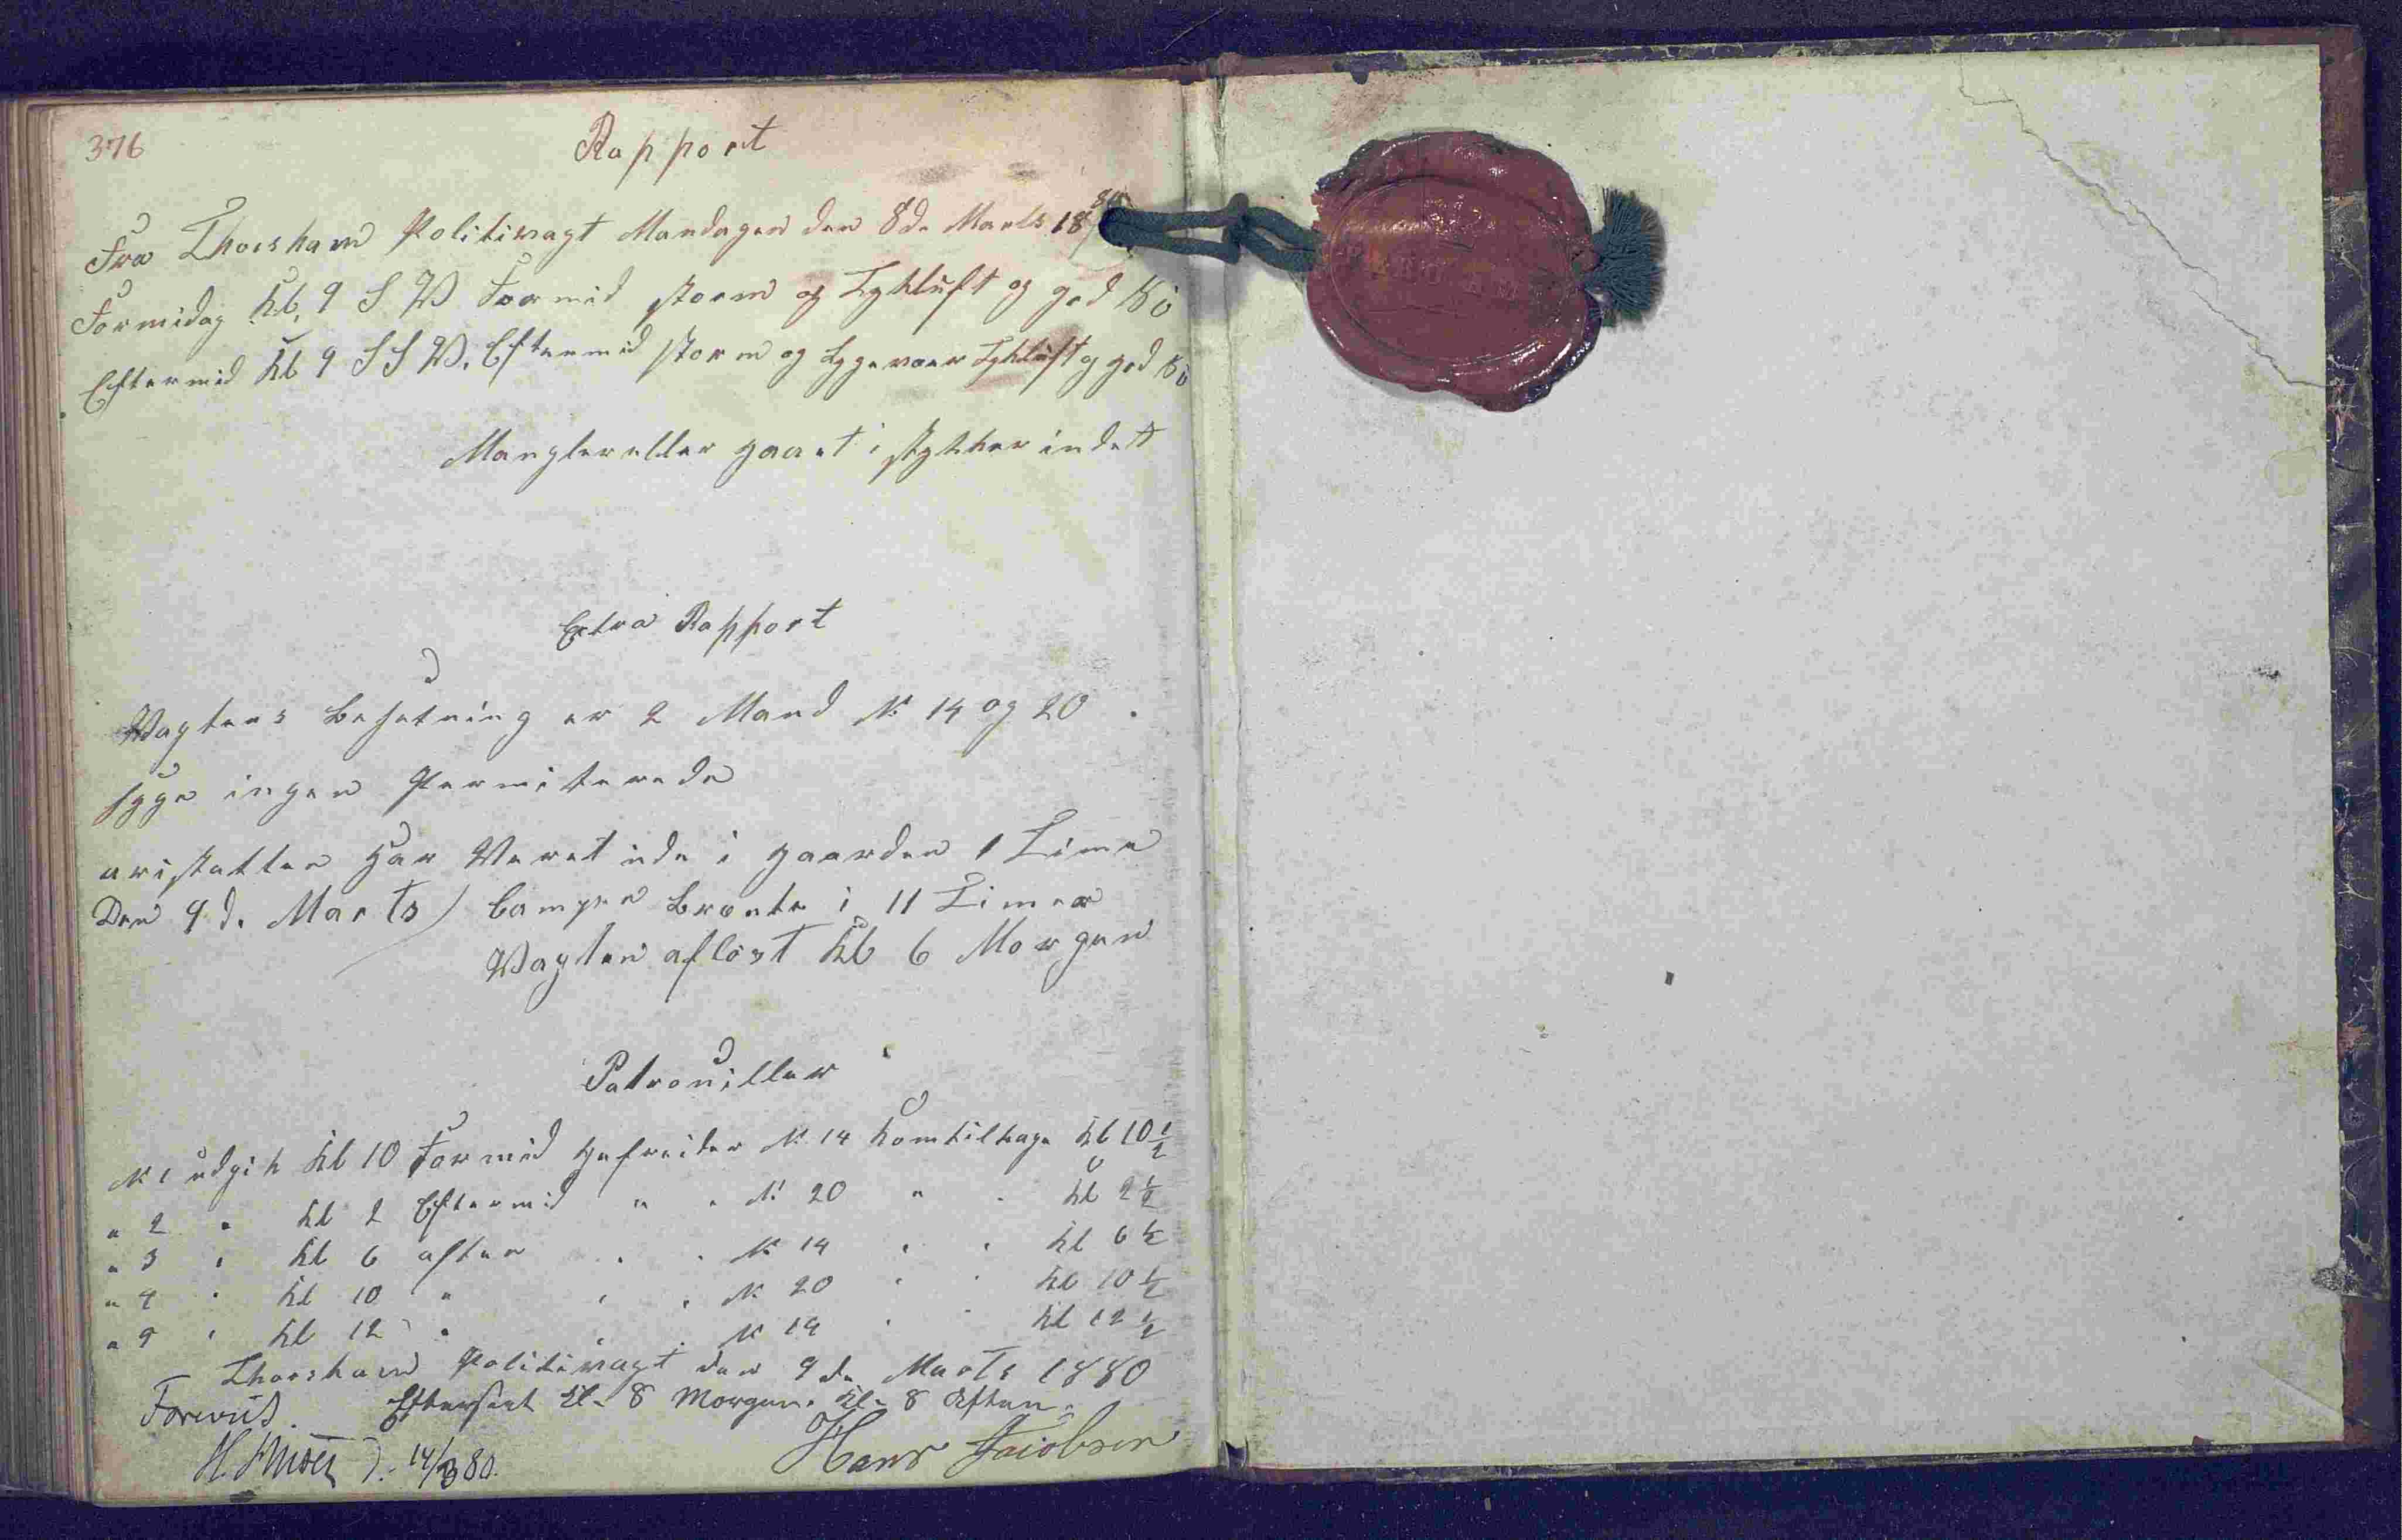 376
Rapport
Fra Thorshavn Politivagt Mandagen den 8de Marts 1880
Formidag Kl. 9 S V Formid storm og Tykluft og god Kø
Eftermid Kl 9 S S V. Eftermid storm og Bygevær Tykluft og god Kø
Mangler eller gaaet i stykker intet
Extra Rapport
Vagtens Besetning er 2 Mand N: 14 og 20.
syge ingen Permiterede
aristatten har Veret ude i gaarden 1 Time
Den 9d. Marts / Lampen Brænte i 11 Timer
Vagten afløst Kl 6 Morgen
Patrouiller
N: 1 udgik Kl 10 Formid Gefreider N: 14 kom tilbage Kl 10 1/2
" 2 " Kl 2 Eftermid " " N: 20 " " Kl 2 1/2
" 3 " Kl 6 aften " " N: 14 " " Kl 6 1/2
" 4 " Kl 10 " " " N: 20 " " Kl 10 1/2
" 5 " Kl 12 " " " N: 14 " " Kl 12 1/2
Thorshavn Politivagt den 9de Marts 1880
Forevist. Efterseet Kl. 8 Morgen. Kl. 8 Aften.
H. 14/3 80. Hans Jacobsen